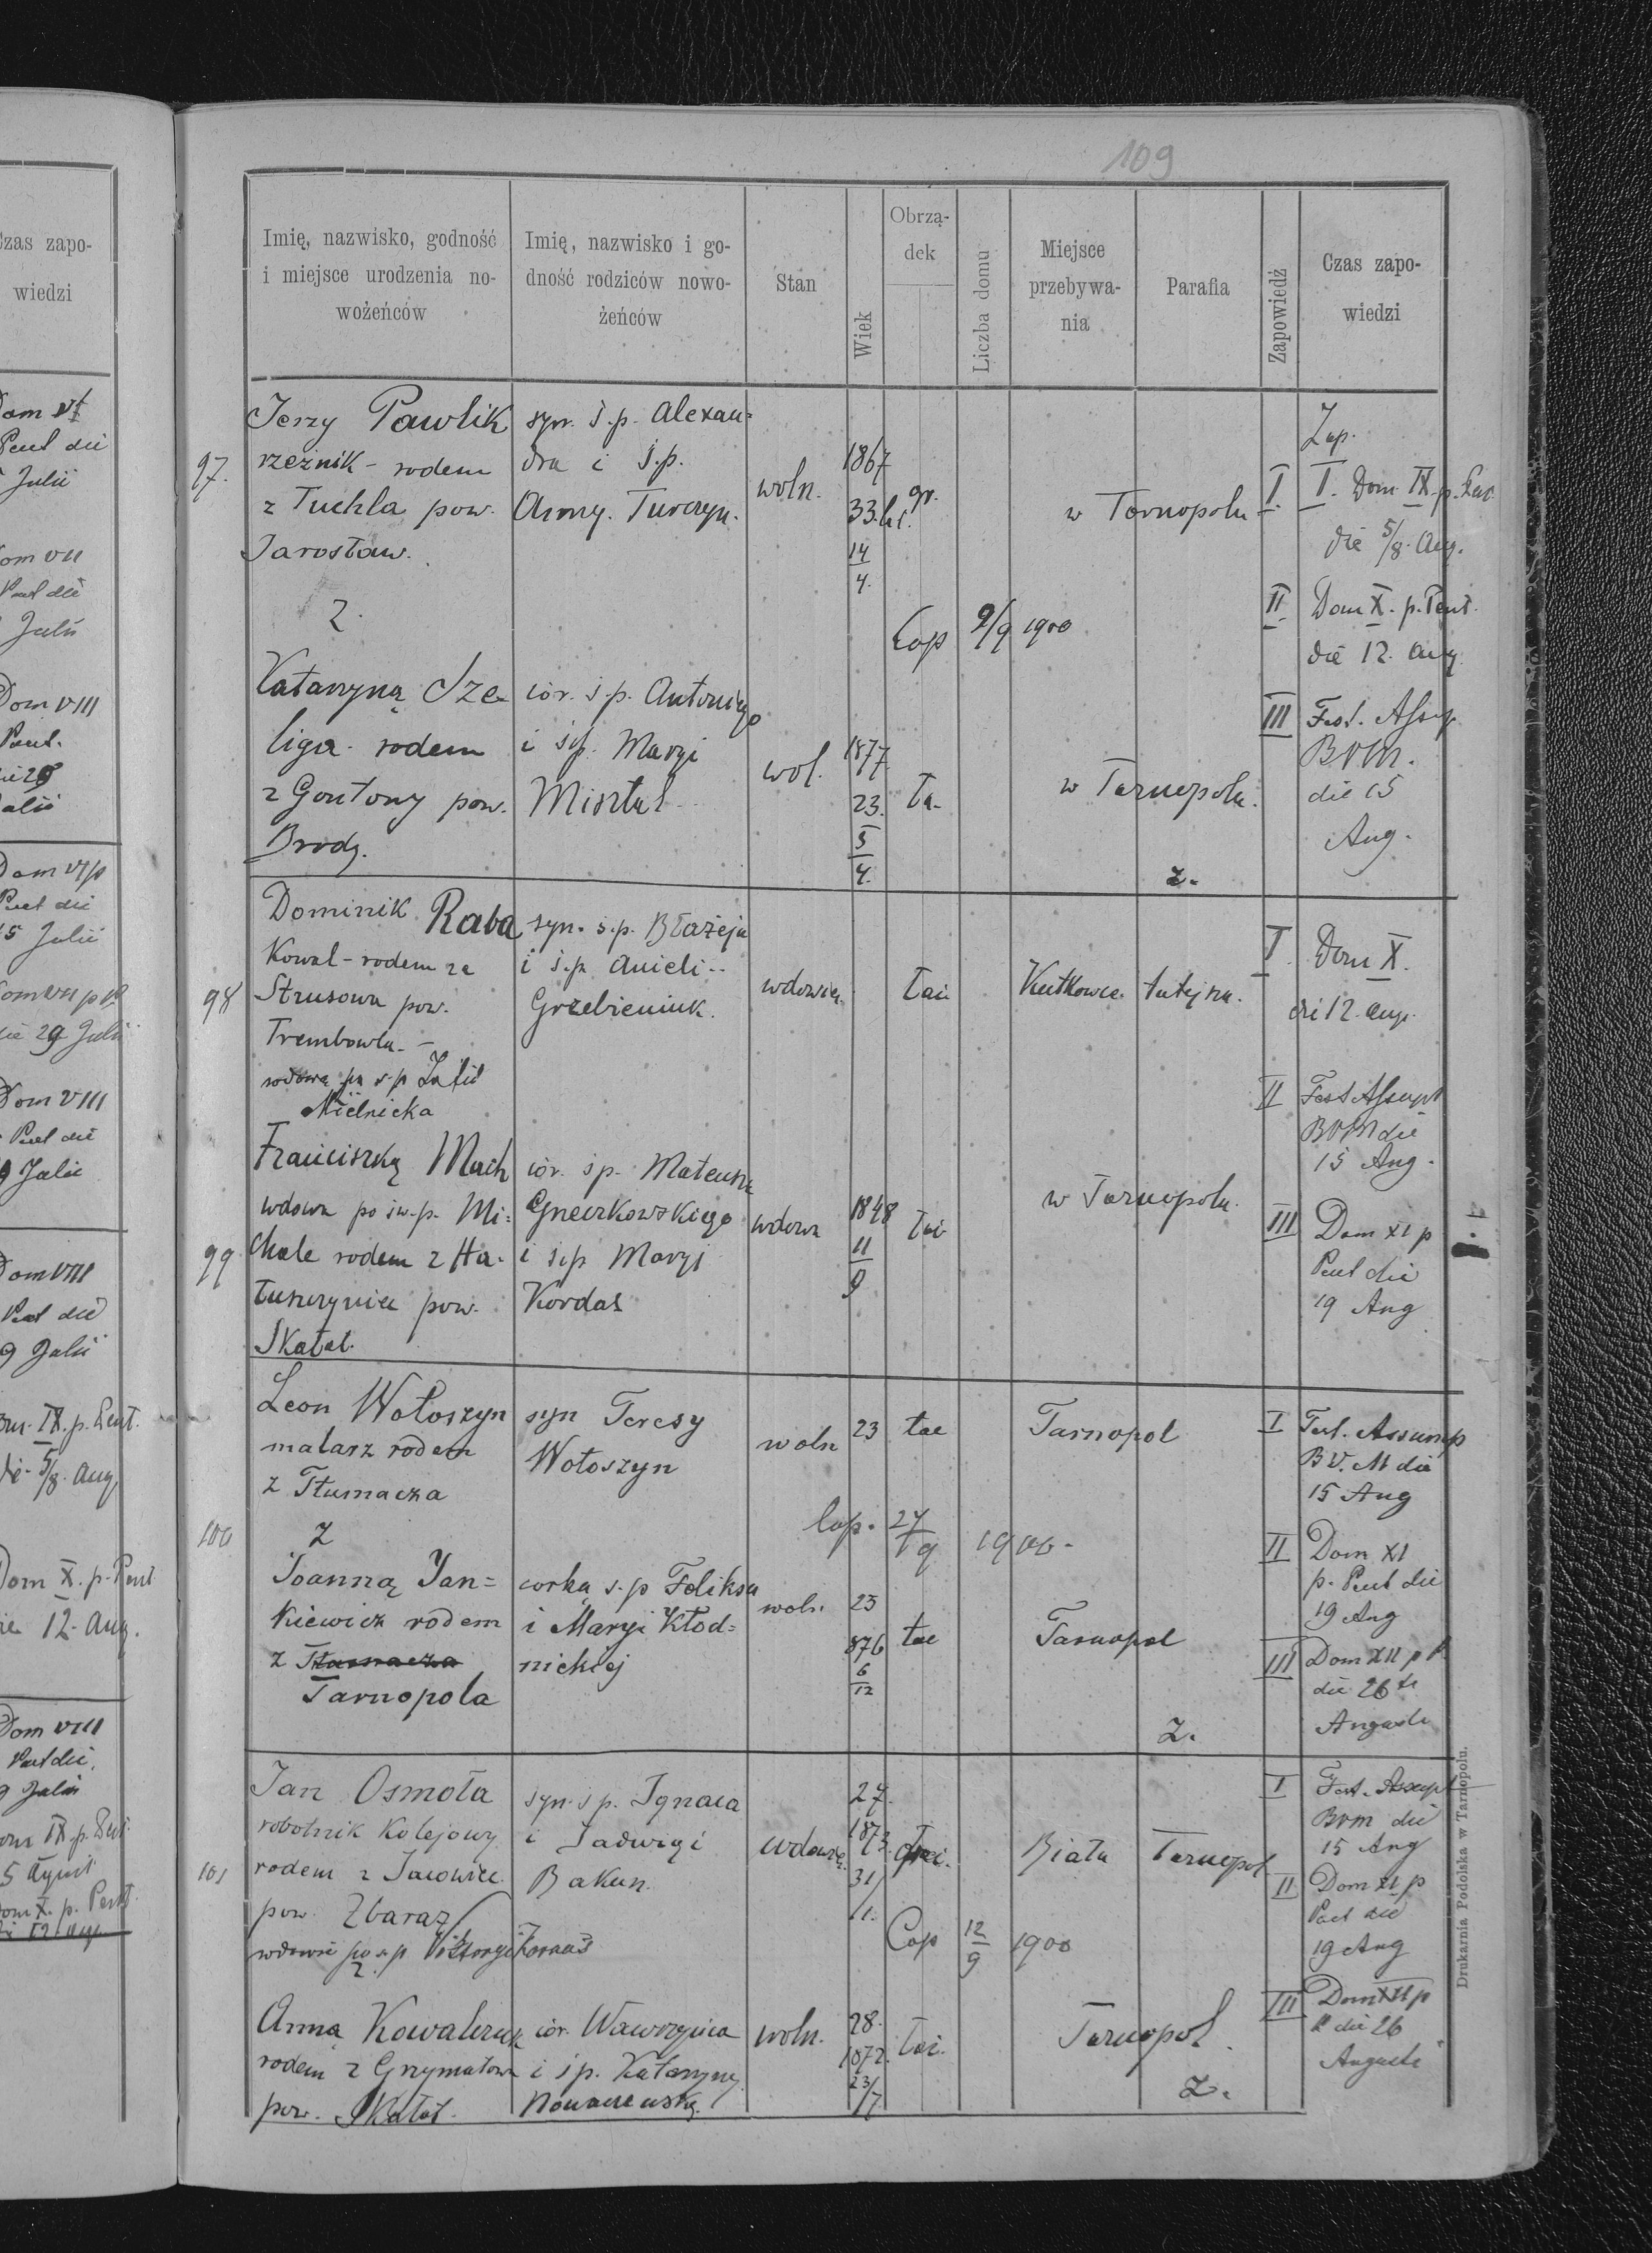 109
Czas zapo-
wiedzi
Dom VI
Pent die
Julii
Dom VII
Pent die
Julii
Dom VIII
Pent.
die 29
Julii
Dom VI p
Pent die
15 Julii
Dom VII p
die 29 Julii
Dom VIII
Pent die
Julii
Dom VIII
Pent die
9 Julii
Dom. IX. p. Pent.
die 5/8. Aug.
Dom X. p. Pent
die 12. Aug.
Dom VIII
Pent die
9 Julii
Dom IX. p. Pent
5 August
Dom X. p. Pent
die 12 Aug
Imię, nazwisko, godność
i miejsce urodzenia no-
wożeńców
Imię, nazwisko i go-
dność rodziców nowo-
żeńców
Stan
Wiek
Obrzą-
dek
Liczba domu
Miejsce
przebywa-
nia
Parafia
Zapowiedź
Czas zapo-
wiedzi
97.
Jerzy Pawlik
rzeźnik - rodem
z Tuchla pow.
Jarosław.
syn. ś.p. Alexan=
dra i ś.p.
Anny. Turczyn.
woln.
1867
33. l.
14
4.
gr.
w Tarnopolu
Zap.
I. I. Dom. IX. p. Pent.
die 5/8. Aug.
II. Dom X. p. Pent.
die 12. Aug
III Fest. Assup.
BVM.
die 15
Aug.
Z.
Cop 9/9 1900
Katarzyną Sze
liga. rodem
z Gontowy pow.
Brody.
cór. ś.p. Antoniego
i ś.p. Maryi
Misztal
wol.
1877.
23.
5
4.
ła.
w Tarnopolu.
z.
98
Dominik Raba
Kowal - rodem ze
Strusowa pow.
Trembowla. -
wdowa po ś.p
Mielnicka
syn. ś.p. Błażeja
i ś.p. Anieli
Grzebieniuk.
wdowiec
łaci
Kutkowce. tutejsza.
I. Dom X.
die 12. Aug.
II Fest Assupt
BVM die
15 Aug.
99
Franciszką Mach
wdowa po św. p. Mi=
chale rodem z Ha-
łuszczyniec pow.
Skałat.
cór. ś.p. Mateusza
Gneczkowskiego
i ś.p Maryi
Kordas
wdowa
1848
11
9
łać
w Tarnopolu.
III Dom XI p
Pent die
19 Aug
100
Leon Wołoszyn
malarz rodem
z Tłumacza
syn Teresy
Wołoszyn
woln
23
łac
Tarnopol
I Fest. Assump
B V. M die
15 Aug
Z
Cop. 27
9 1900 -
II Dom XI
p. Pent die
19 Aug
Joanną Jan=
kiewicz rodem
z Tłumacza
Tarnopola
corką ś.p Feliksa
i Maryi Kłod=
nickiej
woln.
23
876
6
12
łac
Tarnopol
III Dom XII p P
die 26 te
Augusti
Z.
101
Jan Osmoła
robotnik kolejowy
rodem z Jacowiec
pow. Zbaraż
wdowiec po ś.p Wiktoryi
z.
syn. ś p. Ignaca
i Jadwigi
Bakun.
wdowiec.
27.
1873.
31/
1.
Biała Tarnopol
I Fest. Assupt
BVM die
15 Aug
II Dom XI p
Pent die
19 Aug
Cop 12
9 1900
Anną Kowalczuk
rodem z Grzymałowa
pow. Skałat.
cór. Wawrzyńca
i ś p. Katarzyny
woln.
28.
1872.
23/
7
łać.
Tarnopol.
III Dom XII p
P die 26
Augusti
Z.
Drukarnia Podolska w Tarnopolu.